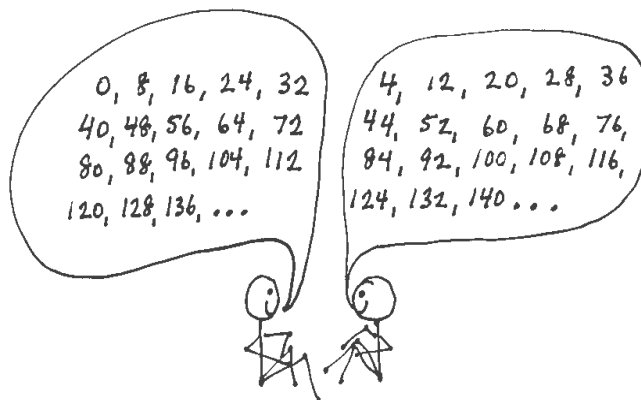 0, 8, 16, 24, 32
40, 48, 56, 64, 72
80, 88, 96, 104, 112
120, 128, 136, ...
4, 12, 20, 28, 36
44, 52, 60, 68, 76,
84, 92, 100, 108, 116,
124, 132, 140 ...